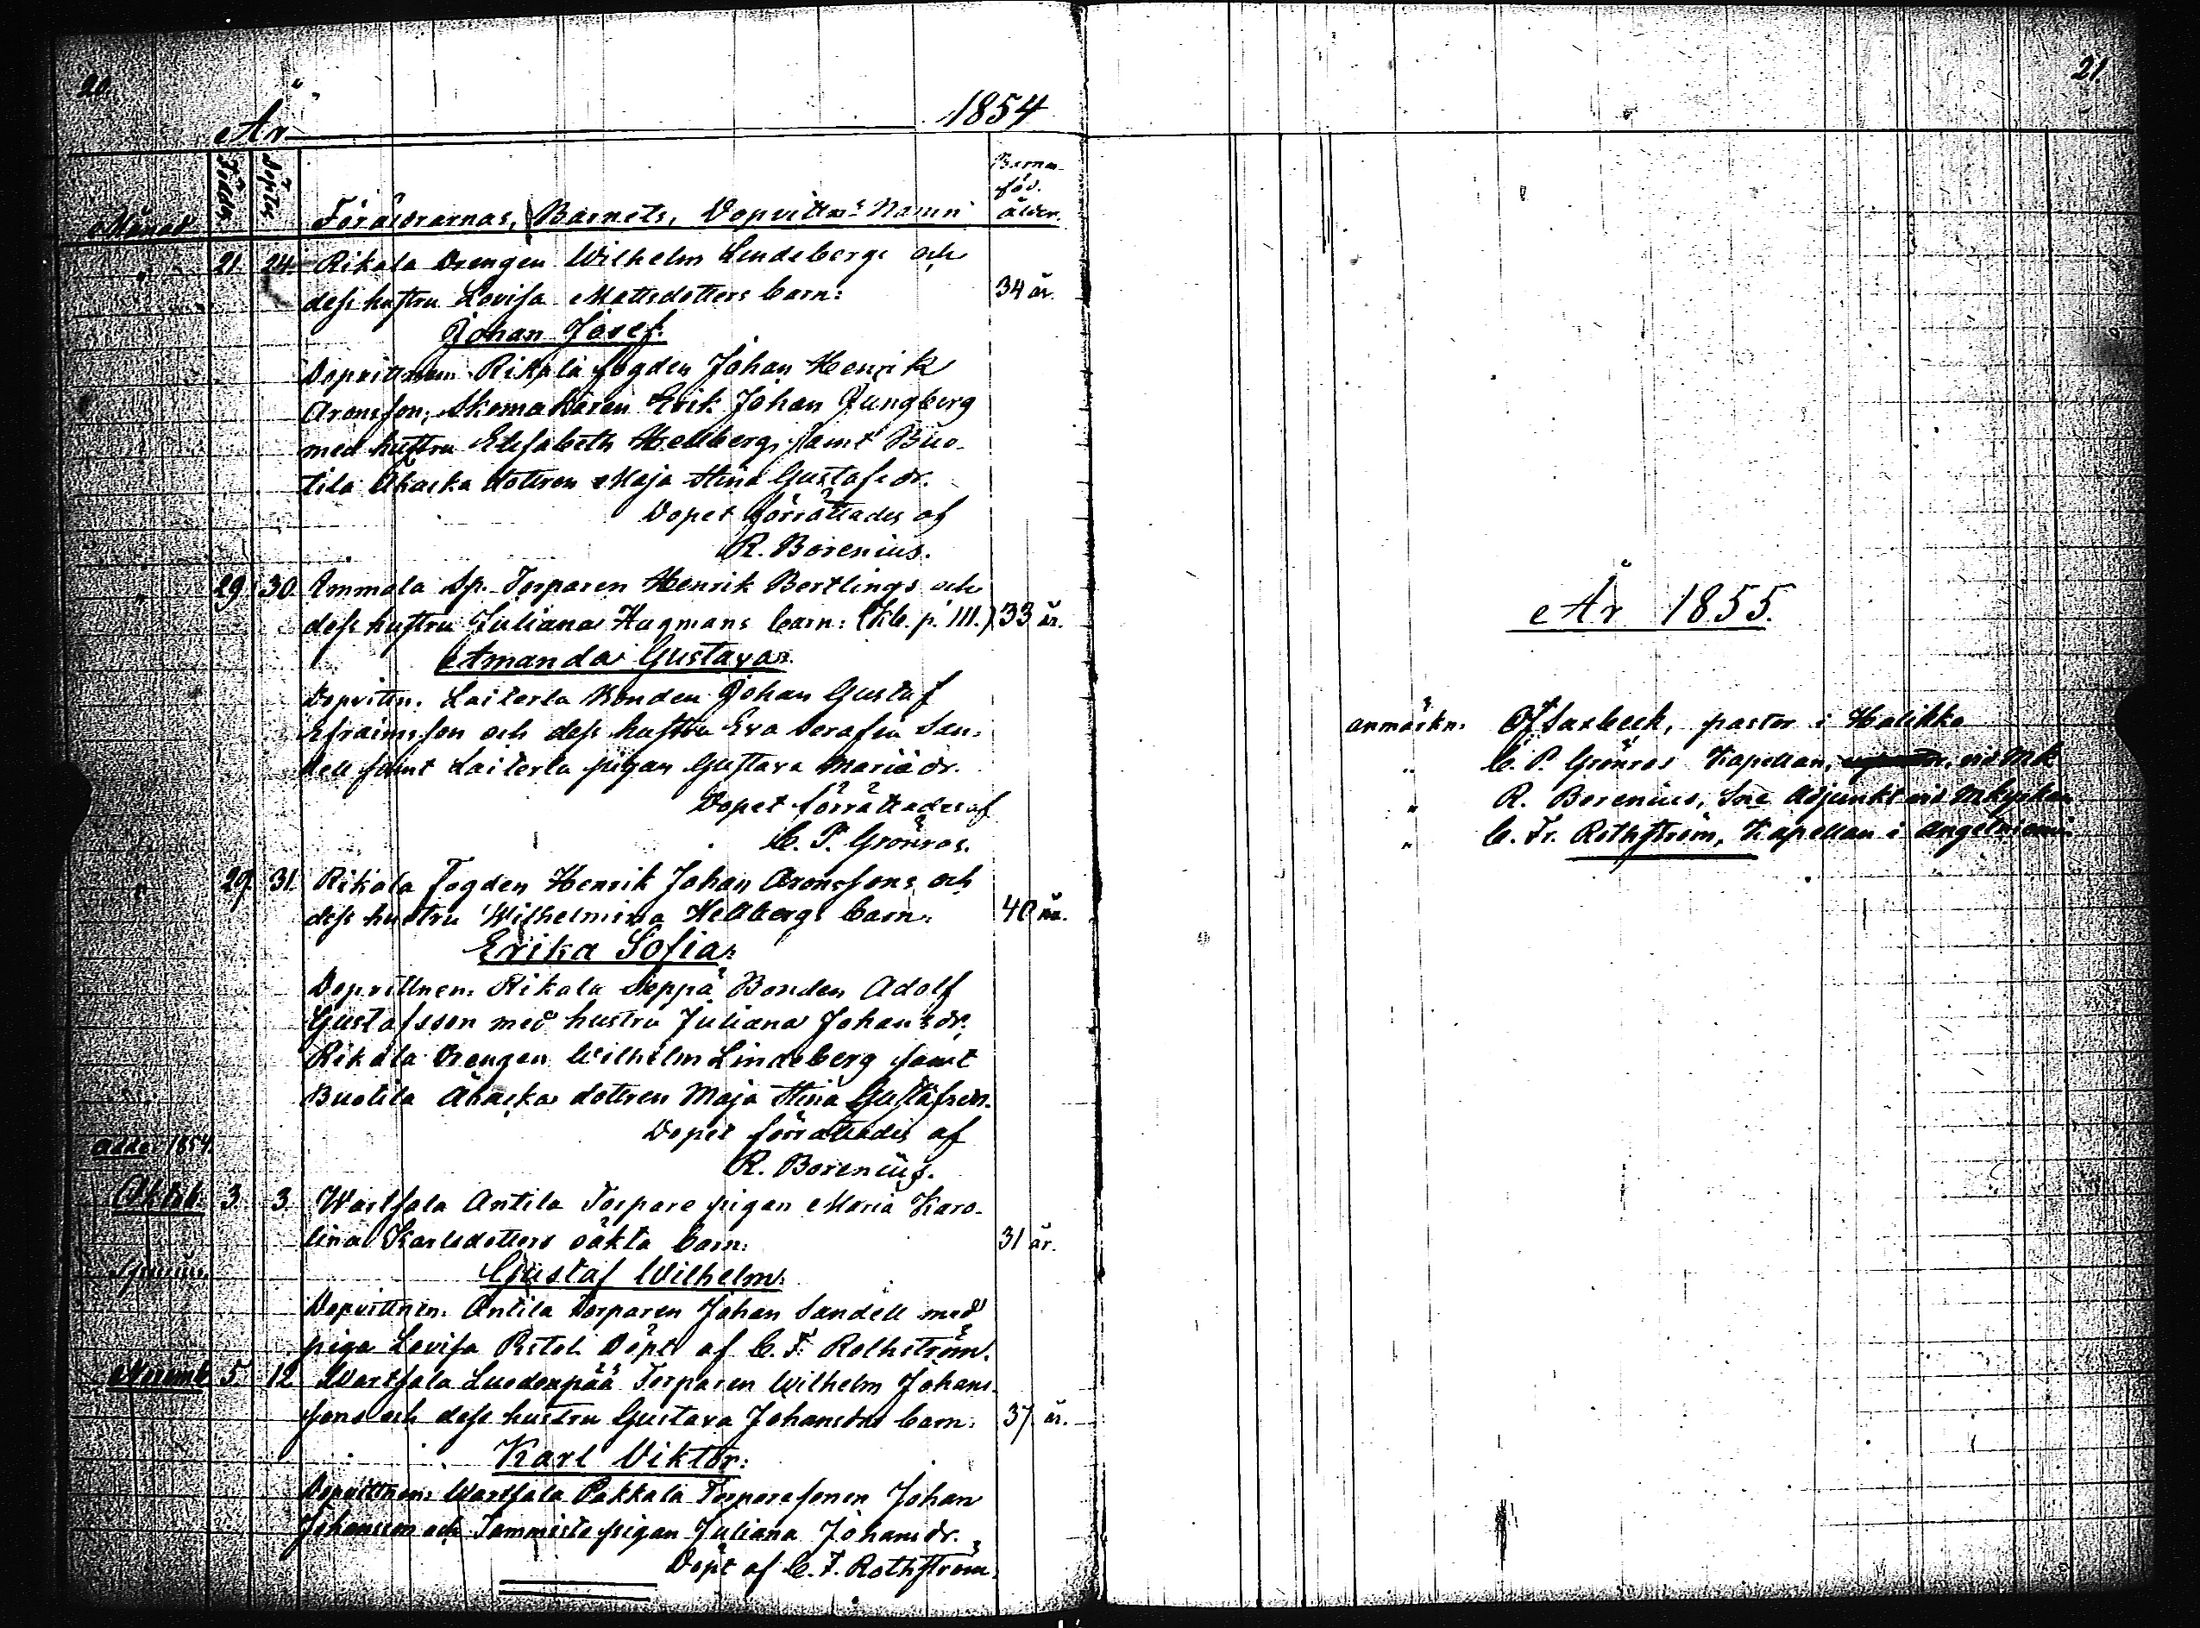 20.
År 1854
Månad Födde Döpte Föräldrarnas, Barnets, Dopvittn:s Namn Barna föd. ålder.
" 21. 24. Rikala Drengen Wilhelm Lindebergs och
dess hustru Lovisa Mattsdotters barn: 34 år.
Johan Josef.
Dopvittnen Rikala fogden Johan Henrik
Aronsson, Skomakaren Erik Johan Ljungberg
med hustru Elisabeth Hellberg, samt Buo-
tila Ahaska dottren Maja Stina Gustafsdr.
Dopet förrättades af
R. Borenius.
" 29 30. Ammala Sp. Torparen Henrik Bertlings och
dess hustru Juliana Hagmans barn: (Kb. p. 111.) 33 år.
Amanda Gustava.
Dopvittn. Laiterla Bonden Johan Gustaf
Efraimsson och dess hustru Eva Serafia San-
dell samt Laiterla pigan Gustava Maria dr.
Dopet förrättades af
C. P. Grönros.
" 29. 31. Rikala Fogden Henrik Johan Aronssons och
dess hustru Wilhelmina Hellbergs barn: 40 år.
Erika Sofia:
Dopvittnen: Rikala Seppä Bonden Adolf
Gustafsson med hustru Juliana Johansdr.
Rikala Drengen Wilhelm Lindeberg samt
Buotila Ahaska dottren Maja Stina Gustafsdr.
Dopet förrättades af
R. Borenius.
1854.
Oktob. 3. 3. Wartsala Antila Torpare pigan Maria Karo-
lina Karlsdotters oäkta barn: 31 år.
Gustaf Wilhelm:
Dopvittnen: Antila Torparen Johan Sandell med
piga Lovisa Pistol. Döpt af C. F. Rothström.
Novemb. 5. 12 Wartsala Luodonpää Torparen Wilhelm Johans-
sons och dess hustru Gustava Johansdrs barn: 37 år.
Karl Viktor:
Dopvittnen: Wartsala Pakkala Torparesonen Johan
Johansson och Tammisto pigan Juliana Johansdr.
Döpt af C. F. Rothström.
21.
År 1855.
anmärkn. Ofsarbeck, pastor i Halikko
" C. P. Grönros Kapellan, vid Mk
" R. Borenius, Sne Adjunkt vid Mkyrkan
" C. Fr. Rothström, Kapellan i Angelniemi.